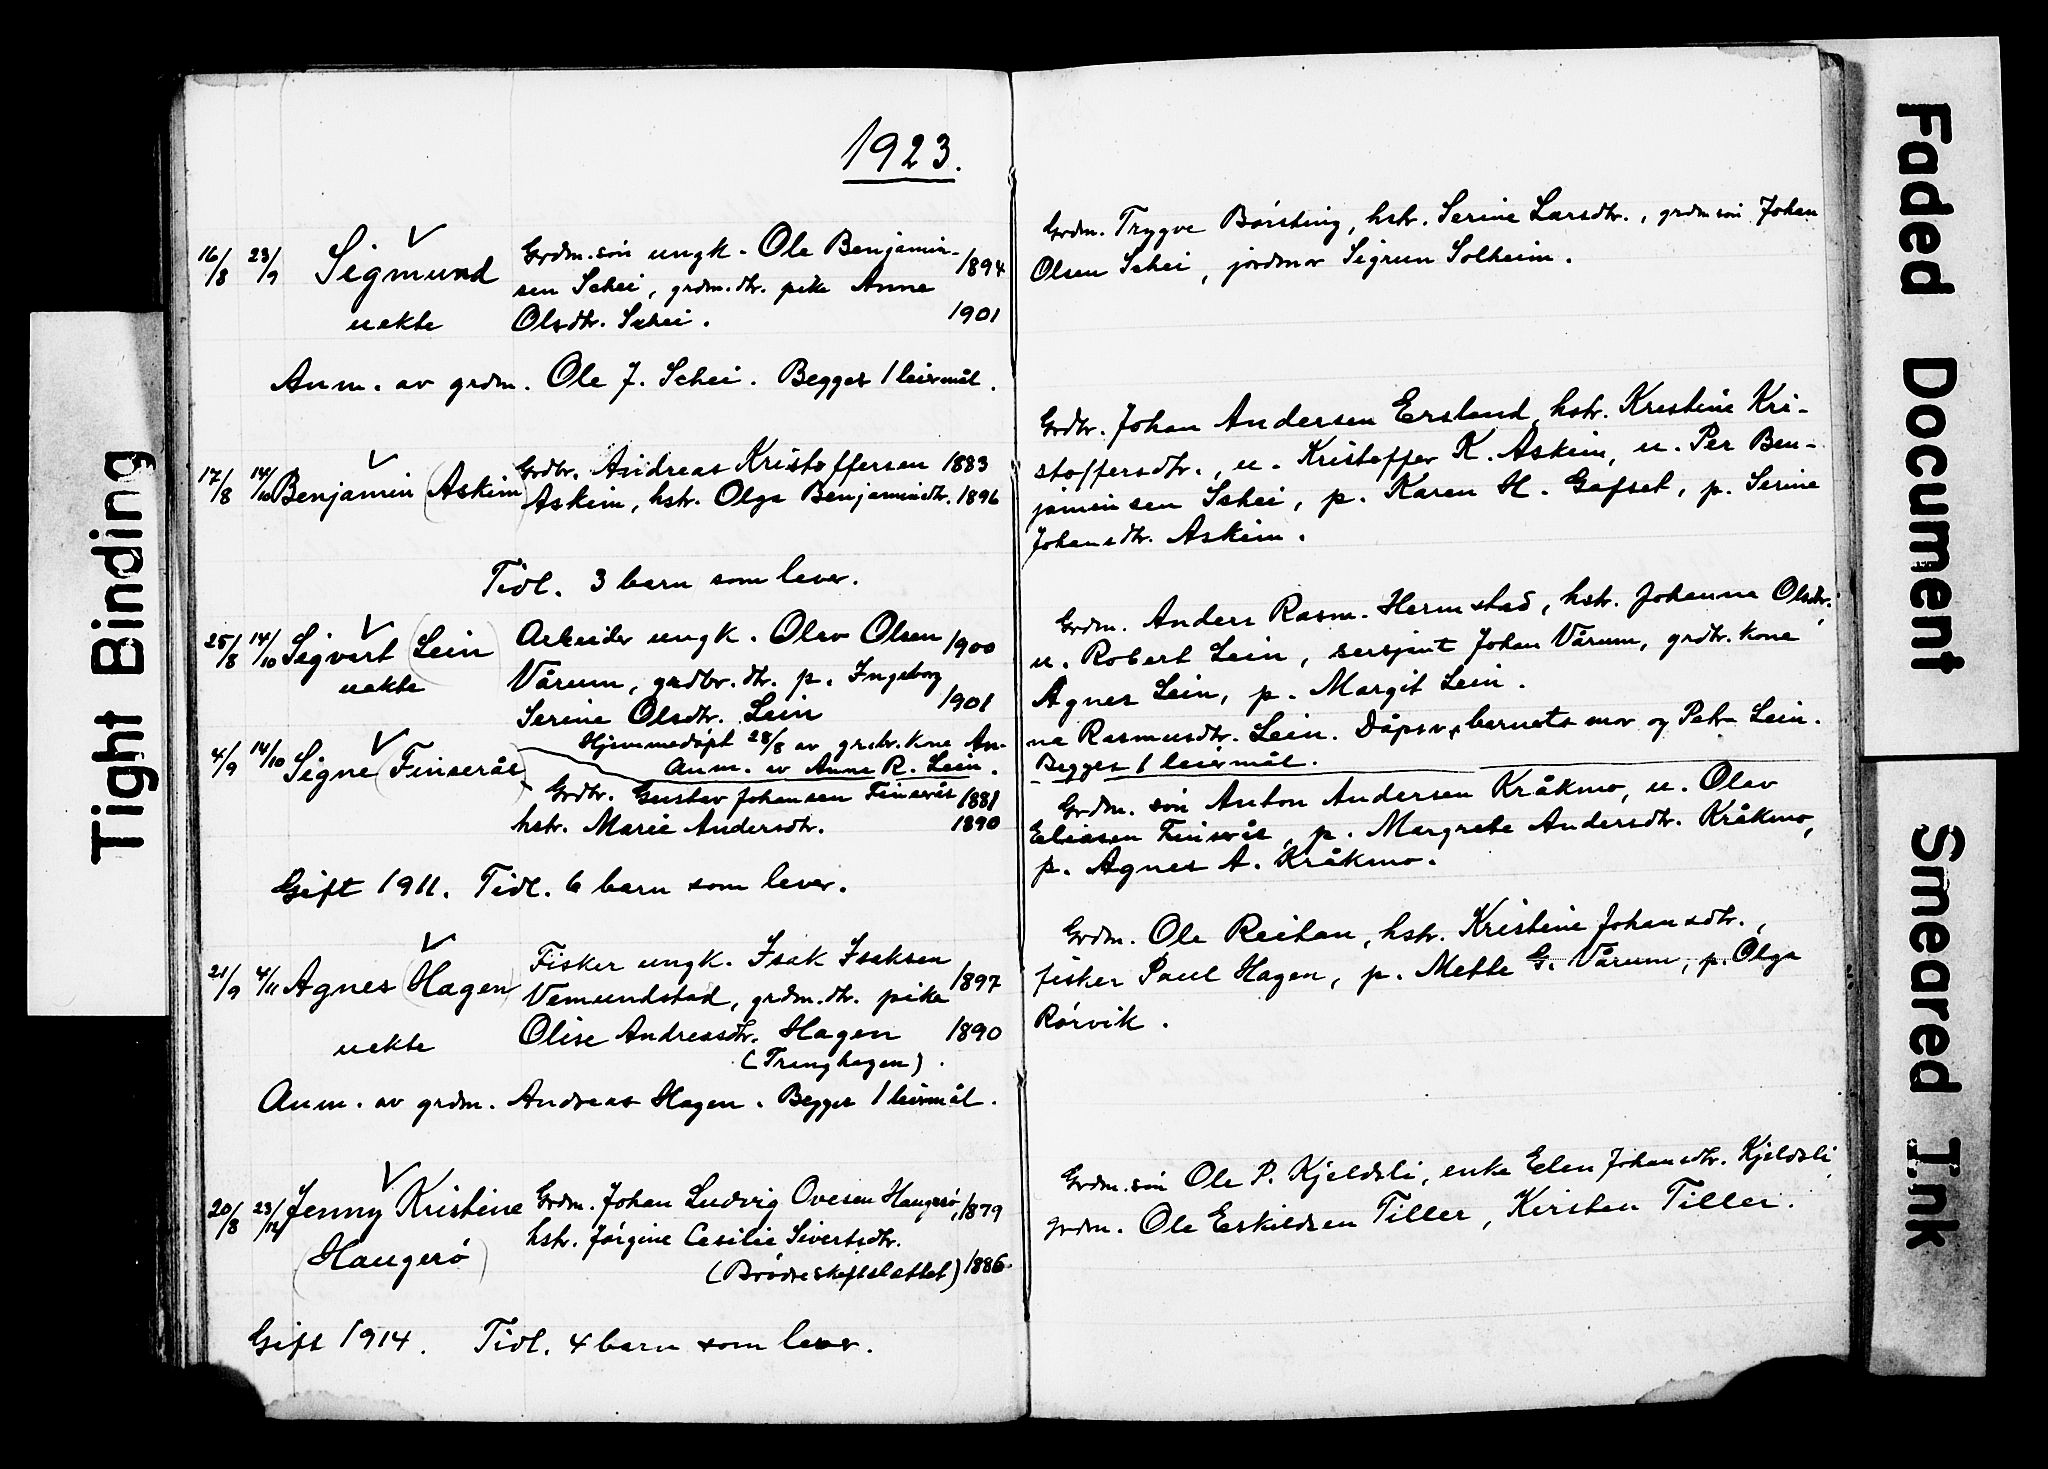 1923.
16/8 23/9 Sigmund Grdm.søn ungk. Ole Benjamin- 1894
sen Schei, grdm.dtr. pike Anne
uekte Olsdtr. Schei. 1901
Anm. av grdm. Ole J. Schei. Begges 1 leiermål.
17/8 14/10 Benjamin (Askim) Grdbr. Andreas Kristoffersen 1883
Askim, hstr. Olga Benjaminsdtr. 1896
Tidl. 3 barn som lever.
25/8 14/10 Sigvart (Lein) Arbeider ungk. Olav Olsen 1900
uekte Vårum, grdbr.dtr. p. Ingeborg
Serine Olsdtr. Lein 1901
Hjemmedøpt 28/8 av grdbr.kone An-
4/9 14/10 Signe (Finserås) Anm. av Anne R. Lein.
Grdbr. Gustav Johansen Finserås 1881
hstr. Marie Andersdtr. 1890
Gift 1911. Tidl. 6 barn som lever.
21/9 4/11 Agnes (Hagen) Fisker ungk. Isak Isaksen
Vemundstad, grdm.dtr. pike 1897
uekte Olise Andreasdtr. Hagen 1890
(Tranghagen).
Anm. av grdm. Andreas Hagen. Begges 1 leiermål.
20/8 23/12 Jenny Kristine Grdm. Johan Ludvig Ovesen Haugerø, 1879
(Haugerø) hstr. Jørgine Cesilie Sivertsdtr.
(Brødreskiftslættet) 1886.
Gift 1914. Tidl. 4 barn som lever.
Grdm. Trygve Børsting, hstr. Serine Larsdtr., grdmsøn Johan
Olsen Schei, jordmor Sigrun Solheim.
Grdbr. Johan Andersen Ersland, hstr. Kristine Kri-
stoffersdtr., u. Kristoffer K. Askim, u. Per Ben-
jaminsen Schei, p. Karen H. Gafset, p. Serine
Johansdtr. Askim.
Grdm. Anders Rasm. Hermstad, hstr. Johanna Olsdtr.,
u. Robert Lein, sersjant Johan Vårum, grdbr. kone
Agnes Lein, p. Margit Lein.
na Rasmusdtr. Lein. Dåpsv. barnets mor og Petra Lein.
Begges 1 leiermål.
Grdm. søn Anton Andersen Kråkmo, u. Olav
Eliasen Finserås, p. Margrete Andersdtr. Kråkmo,
p. Agnes A. Kråkmo.
Grdm. Ole Reitan, hstr. Kristine Johansdtr.,
fisker Paul Hagen, p. Mette G. Vårum, p. Olga
Rørvik.
Grdm.søn Ole P. Kjeldsli, enke Elen Johansdtr. Kjeldsli,
grdm. Ole Eskildsen Tiller, Kirsten Tiller.
Tight Binding
Faded Document
Smeared Ink